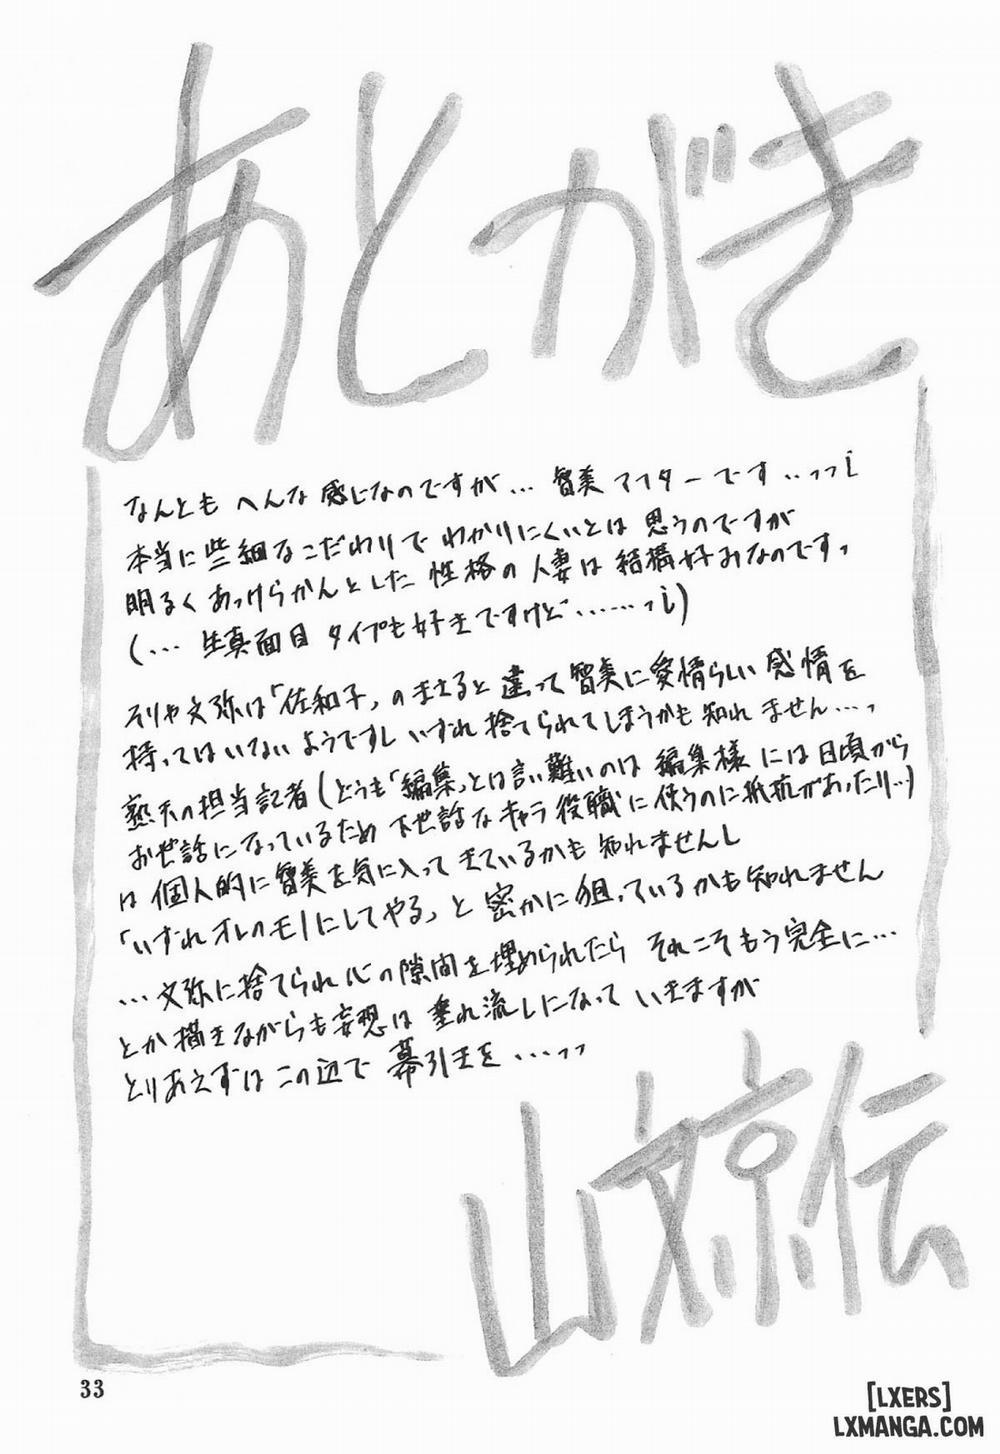 あとがき
なんとも へんな 感じなのですが… 智美 アフターです …っっ゛
本当に 些細な こだわりで わかりにくいとは 思うのですが
明るく あっけらかんとした 性格の 人妻は 結構好みなのです。
(… 生真面目 タイプも 好きですけど ……っ゛)
そりゃ文弥は「佐和子」のまさると 違って 智美に愛情らしい 感情を
持ってはいない ようですし いずれ 捨てられてしまうかも 知れ ません…。
熟天の担当記者(どうも「編集」とは言い難いのは 編集様 には 日頃から
お世話になっているため 下世話な キャラ 役職に 使うのに 抵抗があったり…)
は 個人的に 智美を気に入って きているかも 知れませんし
「いずれ オレのモノにしてやる」と 密かに 狙っているかも 知れません
… 文弥に捨てられ 心の隙間を 埋められたら それこそ もう 完全に…
とか 描きながらも 妄想は 垂れ流しになって いきますが
とりあえずは この辺で 幕引きを …っっ
山文京伝
33
[LXERS]
LXMANGA.COM